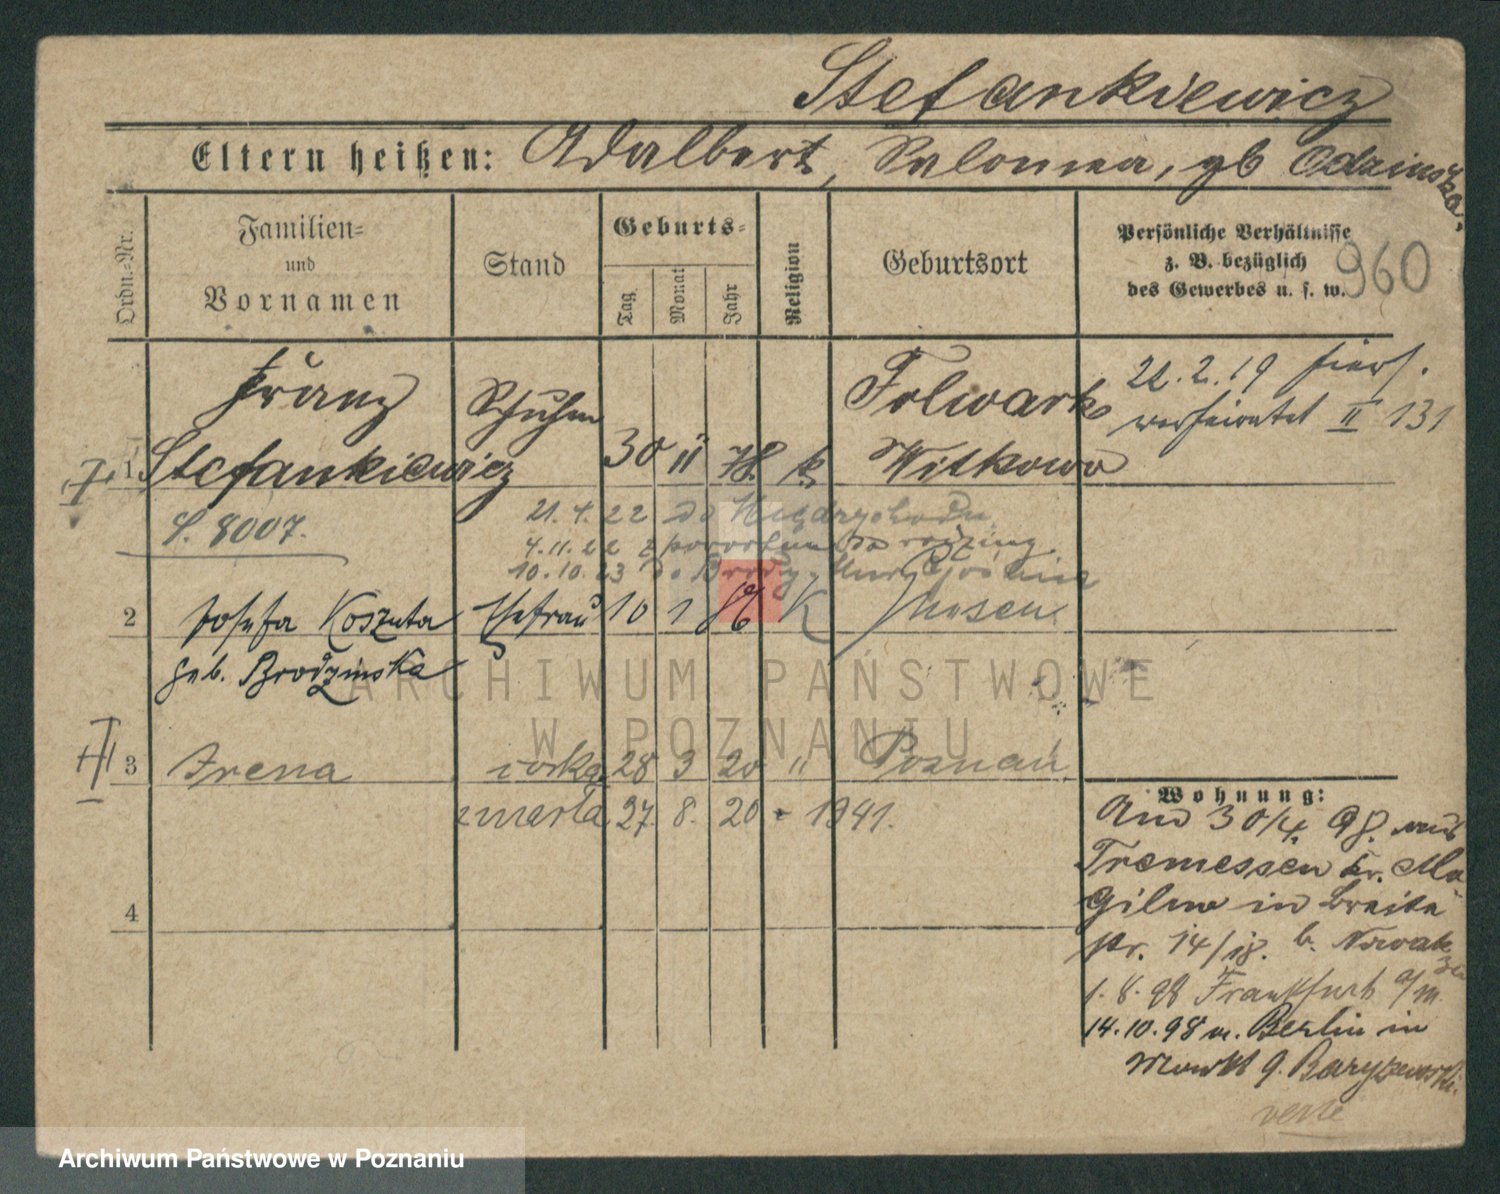 Stefankiewicz
Eltern heißen: Adalbert, Salomea, gb Odzinska.
Ordn.-Nr.
Familien-
und
Vornamen
Stand
Geburts-
Tag
Monat
Jahr
Religion
Geburtsort
Persönliche Verhältnisse
z. B. bezüglich
des Gewerbes u. s. w.
960
1
Franz
Stefankiewicz
Schuhm
30 11 78. k.
Folwark
Witkowo
22.2.19 hiers.
verheiratet II 131
S. 8007.
21.4.22 do Międzychodu
4.11.22 z powrotem do rodziny
10.10.23 do Brody
2
Josefa Koszuta
geb. Brodzinska
Ehefrau
10 1 K
Posen
ARCHIWUM PAŃSTWOWE
W POZNANIU
3
Irena
córka
28 3 20 "
Poznań
zmarła 27. 8. 20 - 1941.
4
Wohnung:
And 30/4. 98. aus
Tremessen Kr. Mo
Gilno in Breite
str. 14/18. b. Nowak
1.8.98 Frankfurt a/m.
14.10.98 v. Berlin in
Markt 9. Baryzewski.
verte
Archiwum Państwowe w Poznaniu